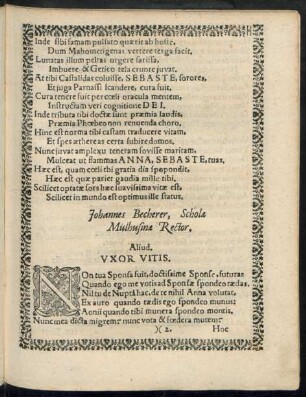 Inde sibi famam pulsato quærit ab hoste,
Dum Mahometigenas vertere terga facit,
Lunatas illum peltas urgere sarissa,
Imbuere & Getico tela cruore juvat.
At tibi Castalidas coluisse, SEBASTE, sorores,
Et juga Parnassi scandere, cura fuit.
Cura tenere fuit per cœli oracula mentem,
Instructam veri cognitione DEI.
Inde tributa tibi doctæ sunt præmia laudis,
Præmia Phœbeo non renuenda choro.
Hinc est norma tibi castam traducere vitam,
Et spes æthereas certa subire domos.
Nunc juvat amplexu teneram fovisse maritam.
Mulceat ut flammas ANNA, SEBASTE, tuas,
Hæc est, quam cœli tibi gratia dia spopondit.
Hæc est quæ pariet gaudia mille tibi.
Scilicet optatæ sors hæc suavissima vitæ est.
Scilicet in mundo est optimus ille status.
Johannes Becherer, Scholæ
Mulhusinæ Rector,
Aliud.
VXOR VITIS.
NOn tua Sponsa fuit, doctissime Sponse, futura:
Quando ego me votis ad Sponsæ spondeo tædas.
Nil tu de Nupta hac, de te nihil Anna volutat,
Ex auro quando tædis ego spondeo munus:
Aonii quando tibi munera spondeo montis,
Nunc mea dicta migrem: nunc vota & fœdera mutem:
)( 2. Hoc